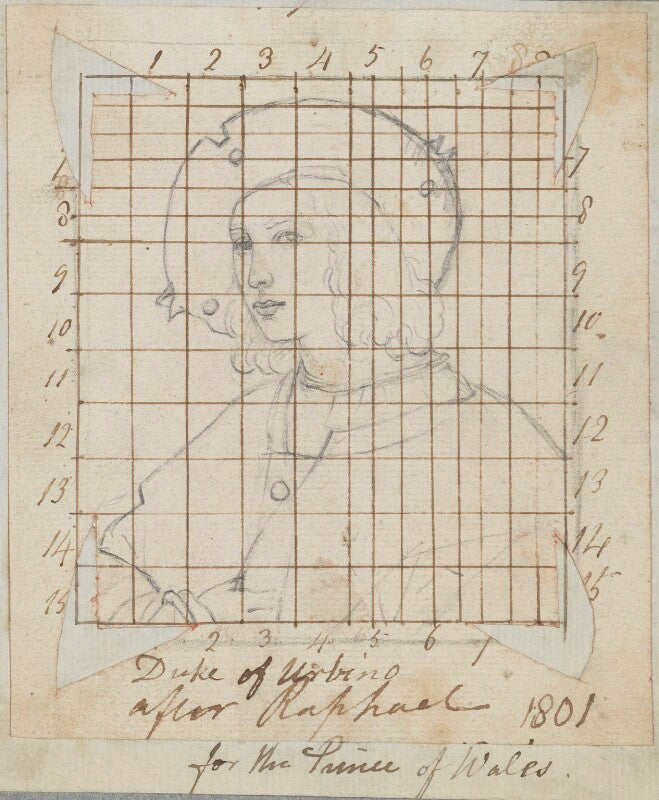 1 2 3 4 5 6 7 8
7 7
8 8
9 9
10 10
11 11
12 12
13 13
14 14
15 15
2 3 4 5 6 7
Duke of Urbino
after Raphael 1801
for the Prince of Wales.